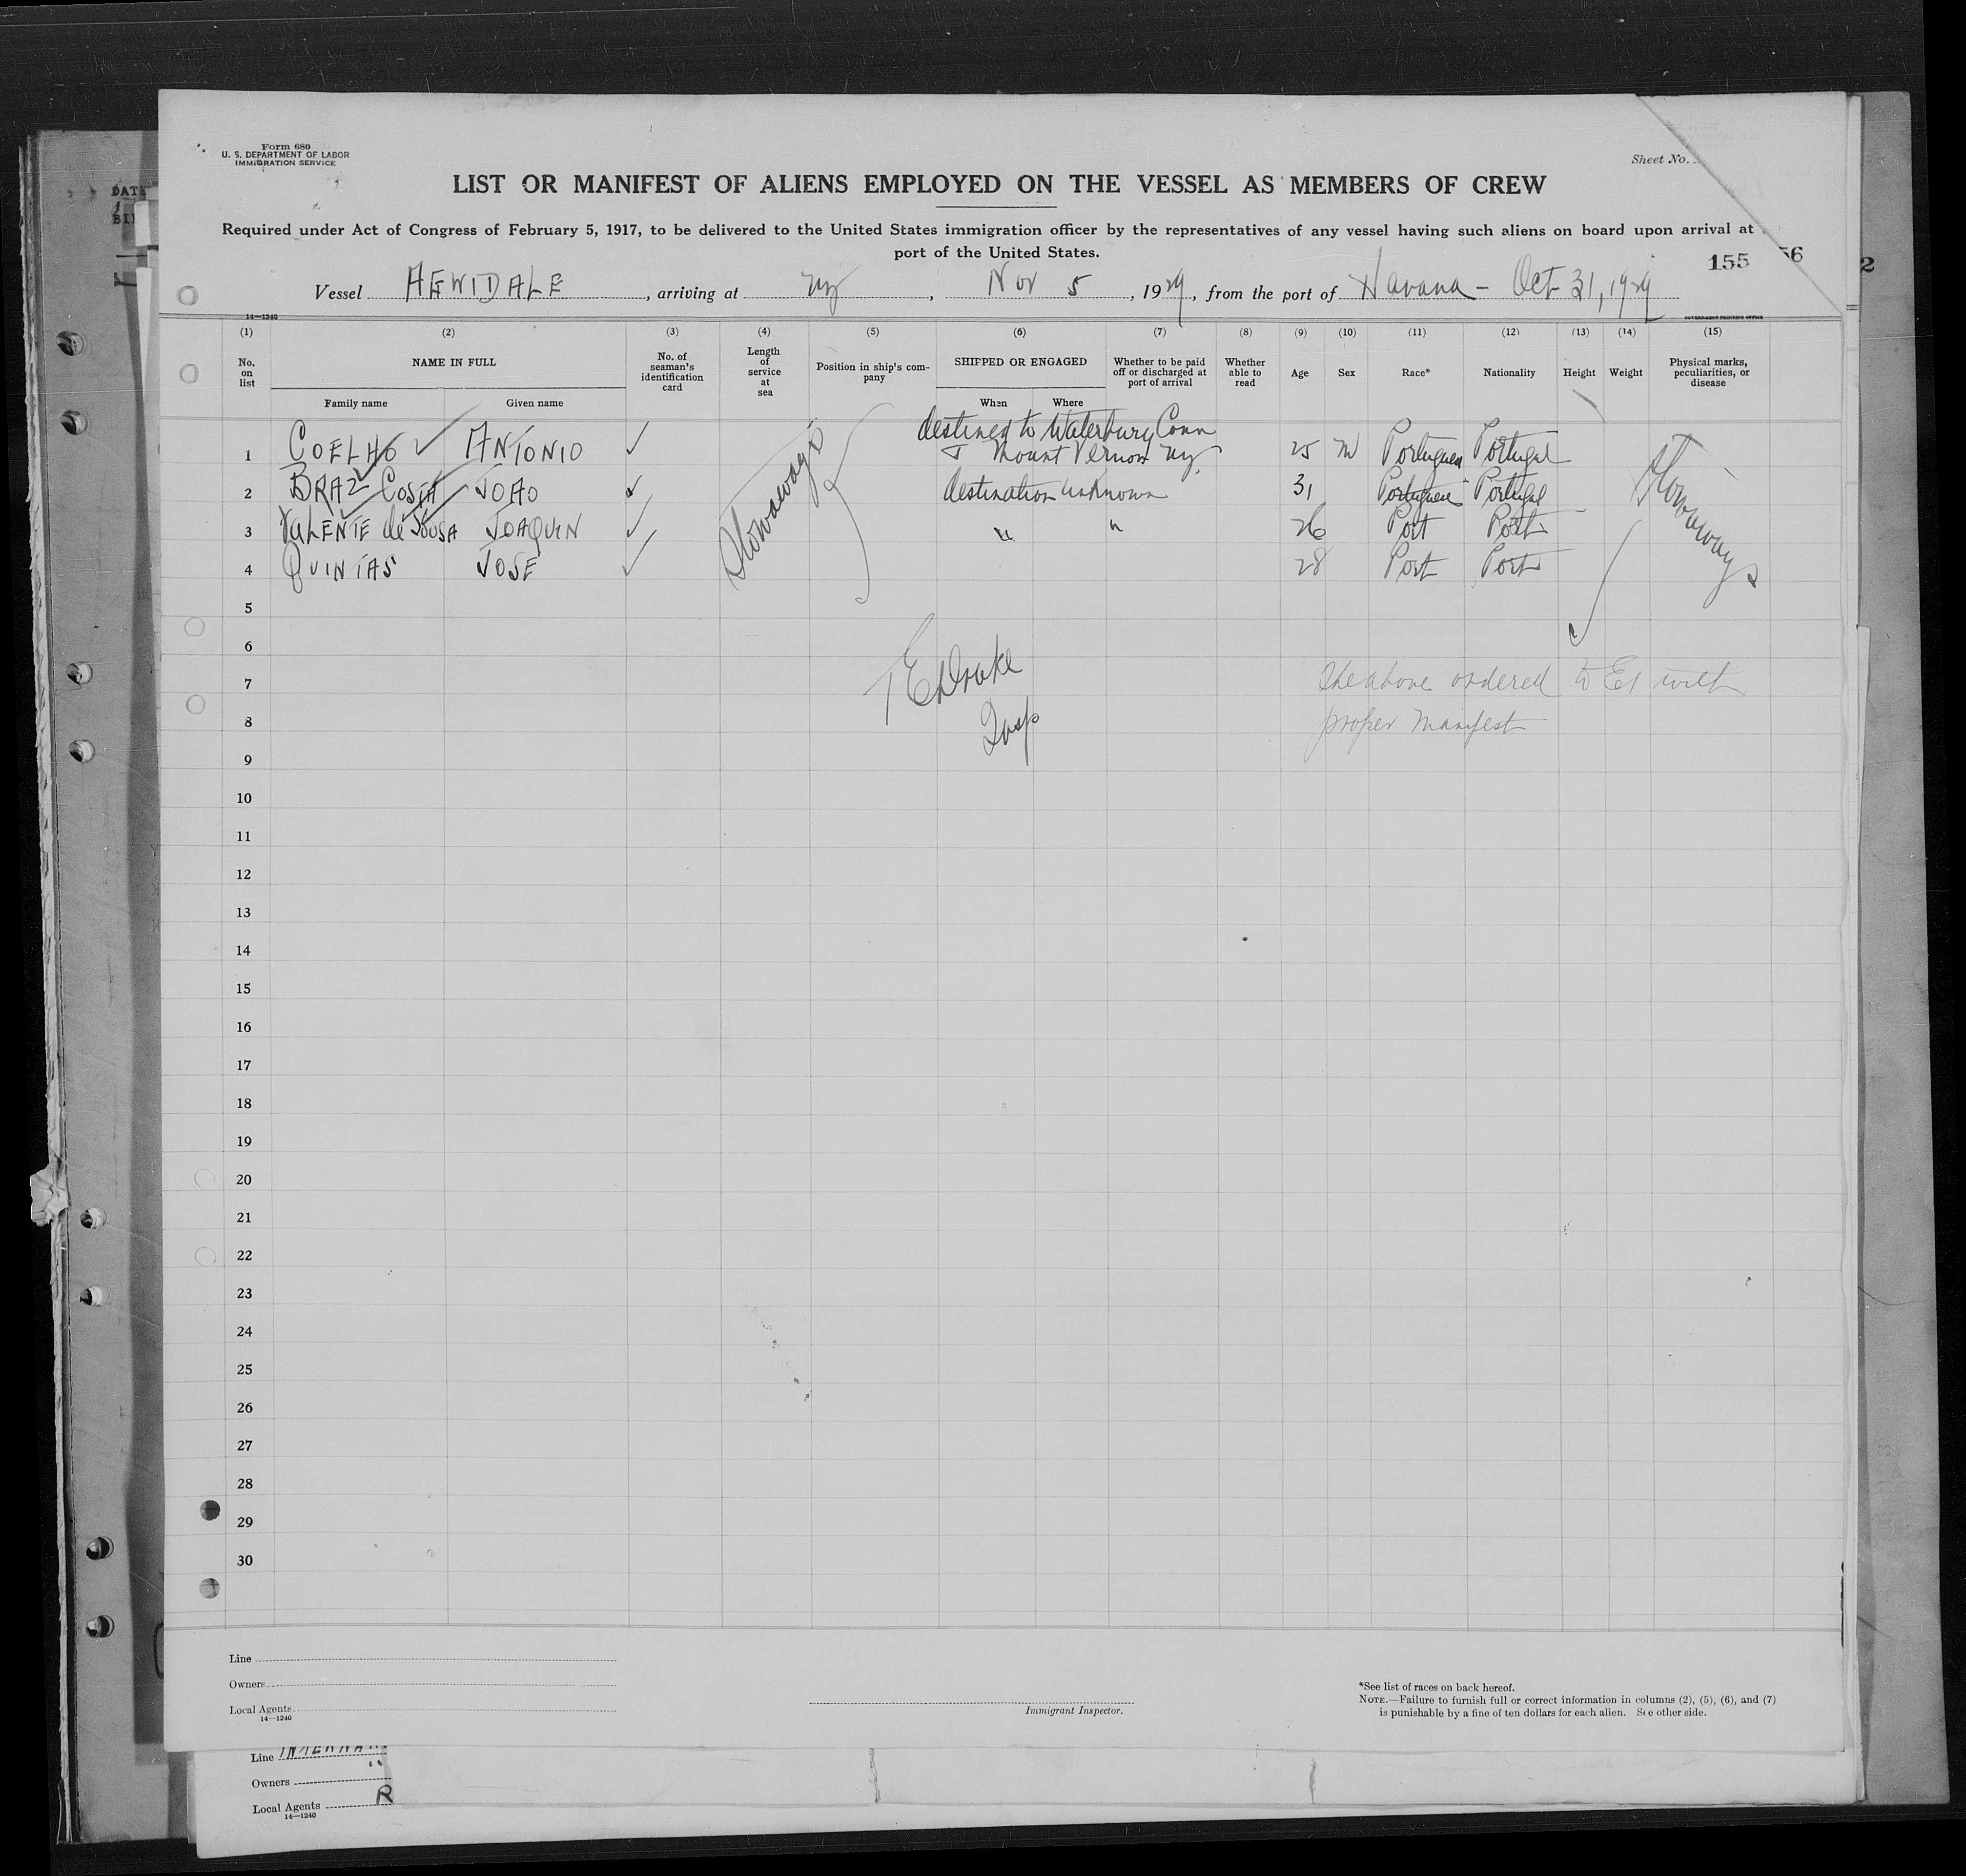 Form 680
U. S. DEPARTMENT OF LABOR
IMMIGRATION SERVICE
Sheet No.
LIST OR MANIFEST OF ALIENS EMPLOYED ON THE VESSEL AS MEMBERS OF CREW
Required under Act of Congress of February 5, 1917, to be delivered to the United States immigration officer by the representatives of any vessel having such aliens on board upon arrival at
port of the United States.
155 56 2
Vessel AGWIDALE, arriving at NY, Nov 5, 1929, from the port of Havana - Oct 31, 1929
14—1240 GOVERNMENT PRINTING OFFICE
(1) (2) (3) (4) (5) (6) (7) (8) (9) (10) (11) (12) (13) (14) (15)
No. on list NAME IN FULL No. of seaman's identification card Length of service at sea Position in ship's company SHIPPED OR ENGAGED Whether to be paid off or discharged at port of arrival Whether able to read Age Sex Race* Nationality Height Weight Physical marks, peculiarities, or disease
Family name Given name When Where
destined to Waterbury Conn
1 COELHO ANTONIO Mount Vernon NY 25 M Portuguese Portugal
2 BRAZ COSTA JOAO destination unknown 31 Portuguese Portugal
3 VALENTE de SOUSA JOAQUIN " " 26 Port Port
4 QUINTAS JOSE 28 Port Port
Stowaways
Stowaways
5
6
7
8
T E Drake
Insp
The above ordered to EI with
proper manifest
9
10
11
12
13
14
15
16
17
18
19
20
21
22
23
24
25
26
27
28
29
30
Line
Owners
Local Agents
14—1240
Immigrant Inspector.
*See list of races on back hereof.
NOTE.—Failure to furnish full or correct information in columns (2), (5), (6), and (7)
is punishable by a fine of ten dollars for each alien. See other side.
Line
Owners
Local Agents R
14—1240